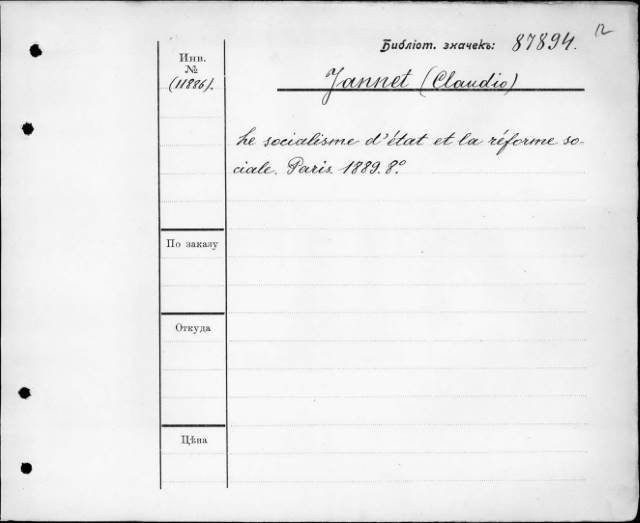 12
Библіот. значекъ: 87894.
Инв.
№
(11886).
Jannet (Claudio)
Le socialisme d'état et la réforme so-
ciale. Paris. 1889. 8°.
По заказу
Откуда
Цѣна